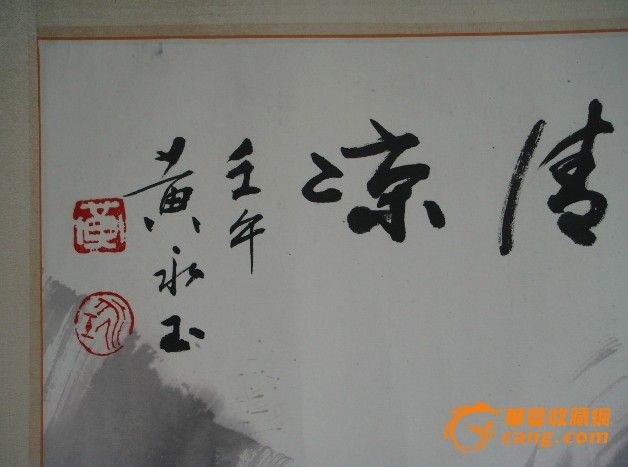 清凉
壬午
黄永玉
華夏收藏網
cang.com